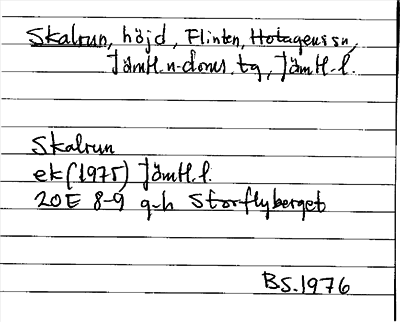 Skalrun, höjd, Flinten, Hotagens sn,
Jämtl. n. doms. tg, Jämtl. l.
Skalrun
ek (1975) Jämtl. l.
20E 8-9 g-h Storflyberget
BS. 1976